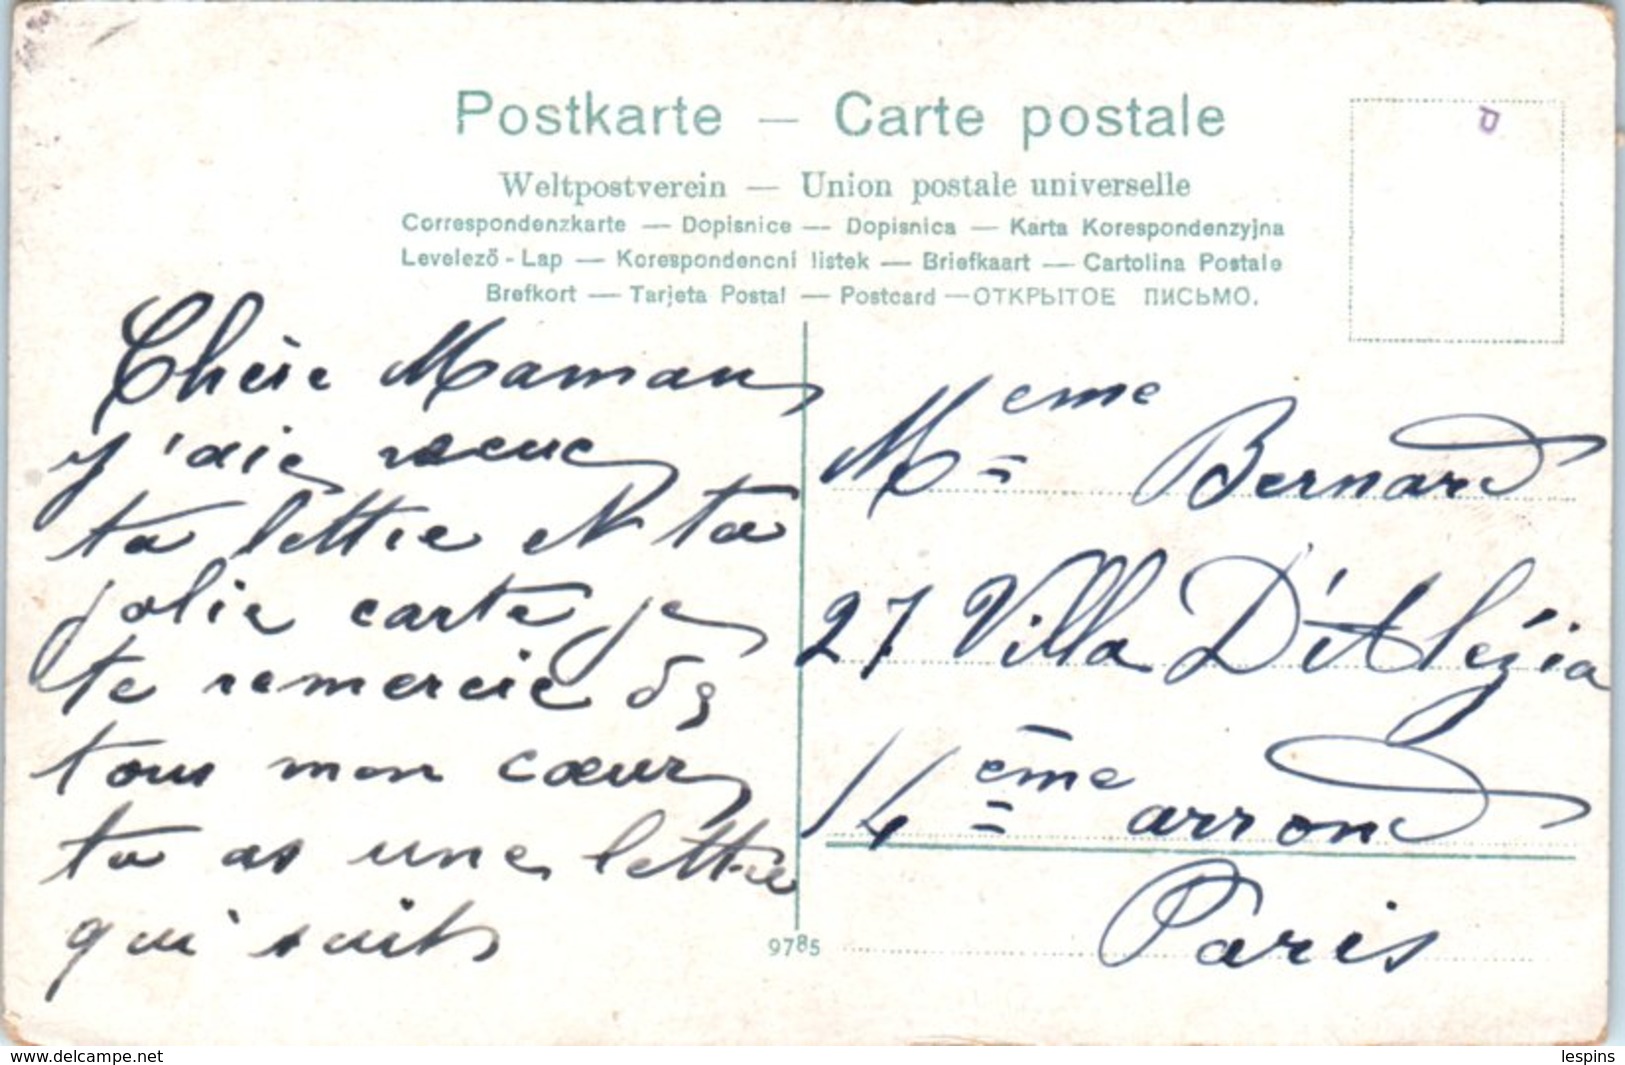 Postkarte — Carte postale
Weltpostverein — Union postale universelle
Correspondenzkarte — Dopisnice — Dopisnica — Karta Korespondenzyjna
Levelező-Lap — Korespondencni listek — Briefkaart — Cartolina Postale
Brefkort — Tarjeta Postal — Postcard — ОТКРЫТОЕ ПИСЬМО.
D
Chère Maman
j'aie recue
ta lettre et ta
jolie carte je
te remercie de
tous mon cœur
tu as une lettre
qui suit
Meme Bernard
27 Villa D'Alézia
14ème arrond
Paris
9785
www.delcampe.net
lespins